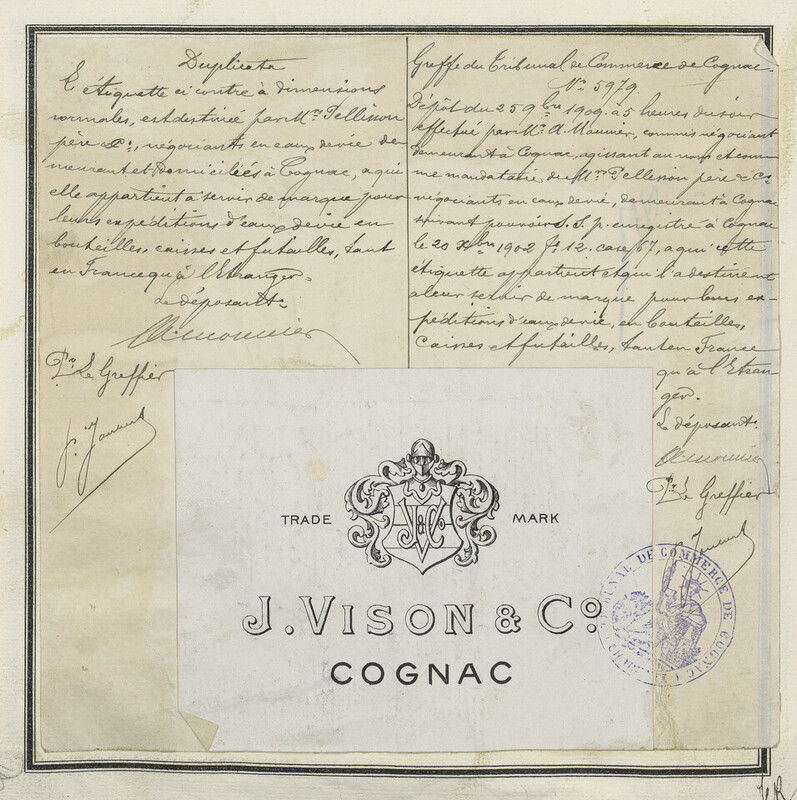 Duplicata
L'étiquette ci contre à dimensions
normales, est destinée par Mrs Tellisson
père & Co, négociants en eaux de vie de
meurant et domiciliés à Cognac, a qui
elle appartient a servir de marque pour
leurs expéditions d'eaux de vie en
bouteilles, caisses et futailles, tant
en France qu'à l'Etranger.
Le déposant.
Pr Le Greffier
Greffe du Tribunal de Commerce de Cognac.
No 5979.
Dépôt du 25 9bre 1909 à 5 heures du soir
effectué par Mr A. Maunier, commis négociant
demeurant à Cognac, agissant au nom et com-
me mandataire de Mrs Tellisson père & Co
négociants en eaux de vie, demeurant à Cognac
suivant pouvoir S.S.p. enregistré à Cognac
le 20 Xbre 1902 fo 12. case 67, a qui cette
étiquette appartient et qui l'a destinent
a leur servir de marque pour leurs ex-
péditions d'eaux de vie, en bouteilles,
Caisses et futailles, tant en France
qu'à l'Etran-
ger.
Le déposant.
Pr Le Greffier
TRADE MARK
V&Co
J. VISON & Co
COGNAC
TRIBUNAL DE COMMERCE DE COGNAC